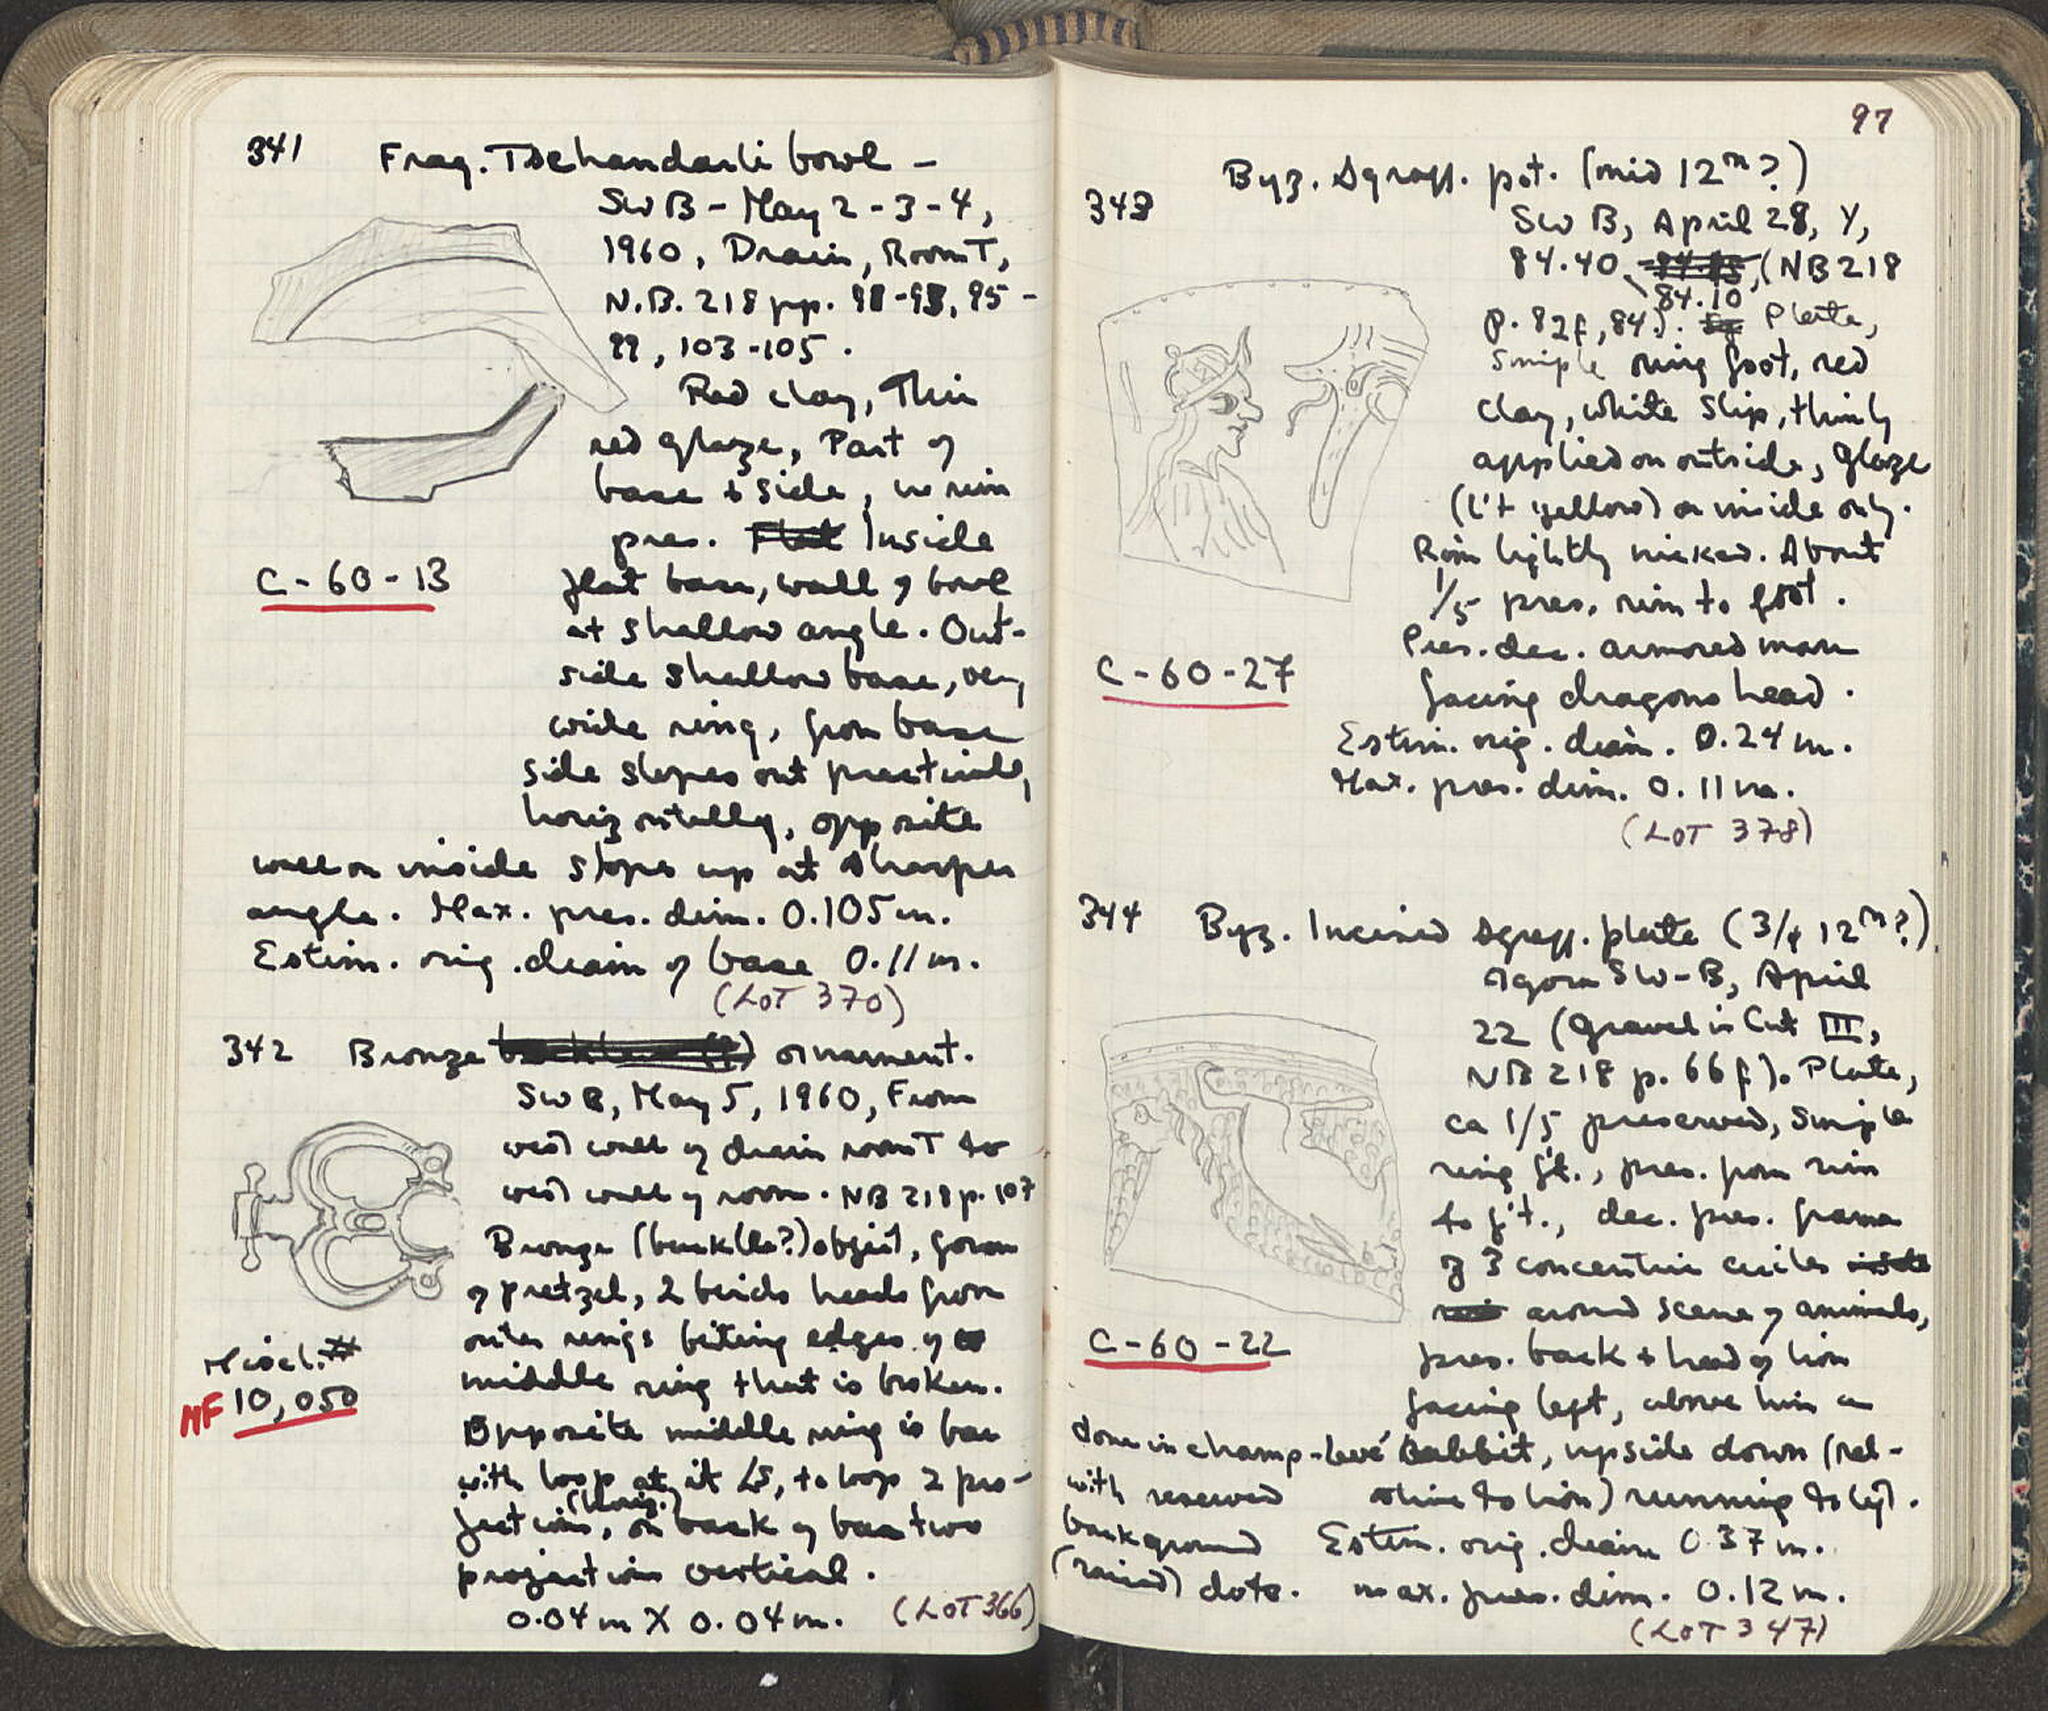 341 Frag. Tschandarli bowl –
SW B – May 2-3-4,
1960, Drain, Room T,
N.B. 218 pp. 91-93, 95-
99, 103-105.
Red clay, Thin
red glaze, Part of
base & side, no rim
pres. Inside
C-60-13
flat base, wall of bowl
at shallow angle. Out-
side shallow base, very
wide ring, from base
side slopes out practically
horizontally, opposite
wall on inside slopes up at sharper
angle. Max. pres. dim. 0.105 m.
Estim. orig. diam of base 0.11 m.
(LOT 370)
342 Bronze ornament.
SW B, May 5, 1960, From
west wall of drain room T to
west wall of room. NB 218 p. 107
Bronze (buckle?) object, form
of pretzel, 2 birds heads from
outer rings biting edges of
middle ring that is broken.
Misc. #
MF 10,050
Opposite middle ring is bar
with loop at it, to loop 2 pro-
jections, (horiz.) on back of bar two
projections vertical.
0.04 m X 0.04 m. (LOT 366)
97
343 Byz. Sgraff. pot. (mid 12th?)
SW B, April 28, Y,
84.40, 84.10 (NB 218
p. 82f, 84). Plate,
simple ring foot, red
clay, white slip, thinly
applied on outside, glaze
(l't yellow) on inside only.
Rim lightly nicked. About
1/5 pres. rim to foot.
Pres. dec. armored man
C-60-27
facing dragons head.
Estim. orig. diam. 0.24 m.
Max. pres. dim. 0.11 m.
(LOT 378)
344 Byz. Incised Sgraff. plate (3/4 12th?)
Agora SW-B, April
22 (Gravel in Cut III,
NB 218 p. 66 f). Plate,
ca 1/5 preserved, Simple
ring f't., pres. from rim
to f't., dec. pres. frame
of 3 concentric circles
around scene of animals,
C-60-22
pres. back & head of lion
facing left, above him a
rabbit, upside down (rel-
ative to lion) running to left.
done in champ-levé
with reserved
background
(raised) dots.
Estim. orig. diam 0.37 m.
max. pres. dim. 0.12 m.
(LOT 347)